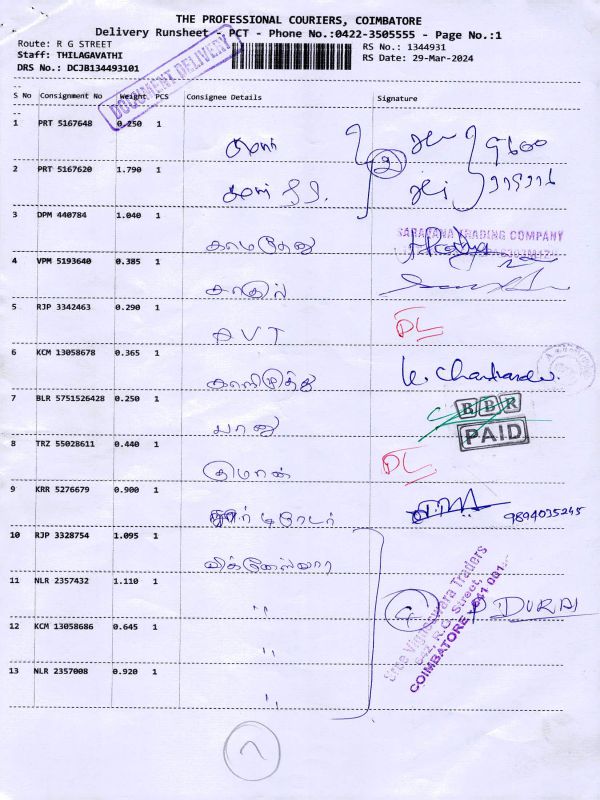 THE PROFESSIONAL COURIERS, COIMBATORE
Delivery Runsheet - PCT - Phone No.:0422-3505555 - Page No.:1
Route: R G STREET
RS No.: 1344931
Staff: THILAGAVATHI
RS Date: 29-Mar-2024
DRS No.: DCJB134493101
DOCUMENT DELIVERY
S No Consignment No Weight PCS Consignee Details Signature
1 PRT 5167648 0.250 1 குமார் 2 9600
2 PRT 5167620 1.790 1 குமார்
3 DPM 440784 1.040 1 காமதேனு SARAVANA TRADING COMPANY
4 VPM 5193640 0.385 1
5 RJP 3342463 0.290 1 AVT DL
6 KCM 13058678 0.365 1 காளிமுத்து
7 BLR 5751526428 0.250 1 பானு BBR PAID
8 TRZ 55028611 0.440 1 DL
9 KRR 5276679 0.900 1 9894035245
10 RJP 3328754 1.095 1 விக்னேஸ்வரா
11 NLR 2357432 1.110 1 " 4 P DURAI
Sree Vigneswara Traders
R.G. Street,
COIMBATORE - 641 001.
12 KCM 13058686 0.645 1 "
13 NLR 2357008 0.920 1 "